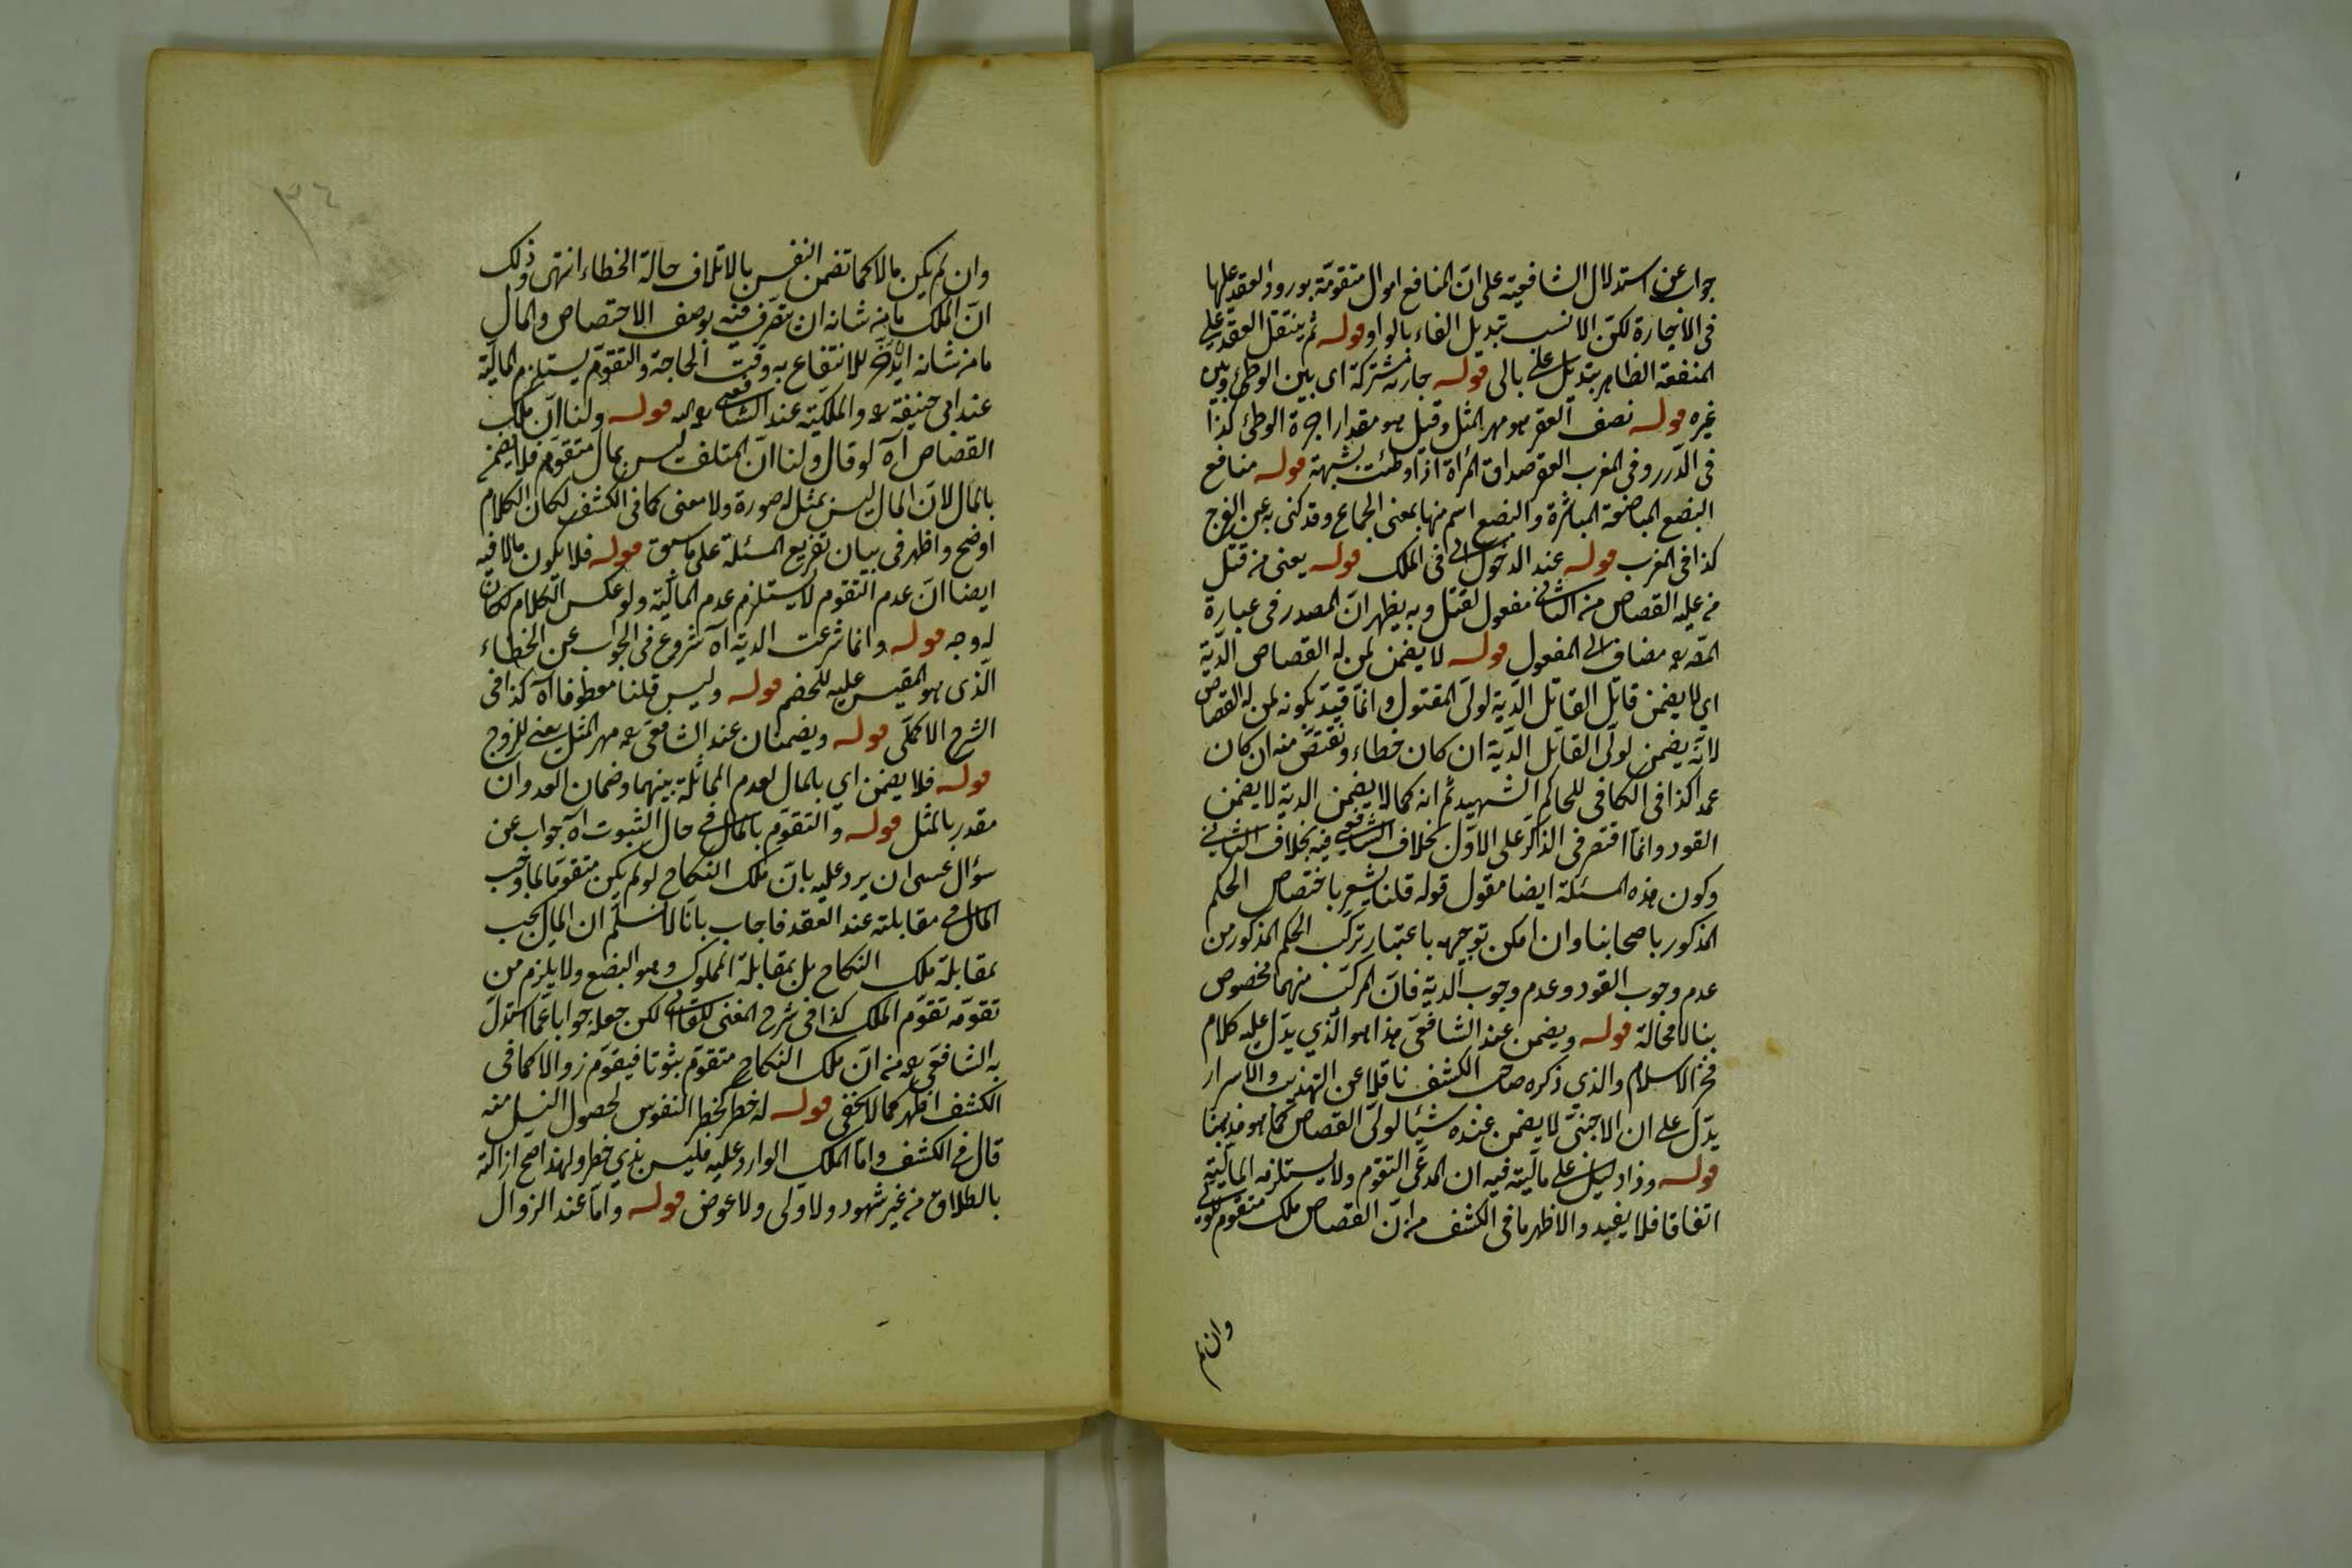 جواب عن استدلال الشافعية على انّ المنافع اموال متقوّمة بورود العقد عليها
فى الاجارة لكن الانسب تبديل الفاء بالواو قوله ثم ينتقل العقد على
المنفعة الظاهر تبديل على بالى قوله جارية مشتركة اى بين الوطئ وبين
غيره قوله نصف العقر هو مهر المثل وقيل هو مقدار اجرة الوطئ كذا
فى الدّرر وفى المغرب العقر صداق المرأة اذا وطئت بشبهة قوله منافع
البضع المباضعة المباشرة والبضع اسم منها بمعنى الجماع وقد كنى به عن الفرج
كذا فى المغرب قوله عند الدخول اى فى الملك قوله يعنى من قتل
من عليه القصاص من الثانى مفعول لقتل وبه يظهر انّ المصدر فى عبارة
المصّ مضاف الى المفعول قوله لا يضمن لمن له القصاص الدّية
اي لا يضمن قاتل القاتل الدّية لولى المقتول وانّما قيّد بكونه لمن له القصاص
لانّه يضمن لولّى القاتل الدّية ان كان خطاء ويقتصّ منه ان كان
عمدا كذا فى الكافى للحاكم الشهيد ثم انه كما لا يضمن الدية لا يضمن
القود وانّما اقتصر فى الذّكر على الاوّل بخلاف الشافعى فيه بخلاف الثانى
وكون هذه المسئلة ايضا مقول قوله قلنا يشعر باختصاص الحكم
المذكور باصحابنا وان امكن توجيهه باعتبار تركّب الحكم المذكور من
عدم وجوب القود وعدم وجوب الدية فانّ المركّب منهما مخصوص
بنا لا محالة قوله ويضمن عند الشافعى هذا هو الّذي يدّل عليه كلام
فخر الاسلام والذي ذكره صاحب الكشف ناقلا عن التهذيب والاسرار
يدّل على ان الاجنبىّ لا يضمن عنده شيئا لولىّ القصاص كما هو مذهبنا
قوله وذا دليل على ماليّته فيه ان المدعى التقوّم ولا يستلزمه الماليّة
اتفاقا فلا يفيد والاظهر ما فى الكشف من انّ القصاص ملك متقوّم للولى
وان لم
وان لم يكن مالا كما تضمن النفس بالاتلاف حالة الخطاء انتهى وذلك
انّ الملك ما من شانه ان يتصّرف فيه بوصف الاختصاص والمال
ما من شانه ان يدّخر للانتفاع به وقت الحاجة والتقوّم يستلزم الماليّة
عند ابى حنيفة رح والملكيّة عند الشافعى رحمه الله قوله ولنا انّ ملك
القصاص آه لو قال ولنا انّ المتلف ليس بمال متقوّم فلا يضمن
بالمال لانّ المال ليس بمثل له صورة ولا معنى كما فى الكشف لكان الكلام
اوضح واظهر فى بيان تفريع المسئلة على ما سبق قوله فلا يكون مالا فيه
ايضا انّ عدم التقوم لا يستلزم عدم الماليّة ولو عكس الكلام لكان
له وجه قوله وانّما شرعت الدية آه شروع فى الجواب عن الخطاء
الّذى هو المقيس عليه للخصم قوله وليس قلنا معطوفا آه كذا فى
الشرح الاكملّى قوله ويضمنان عند الشافعى رح مهر المثل يعنى للزوج
قوله فلا يضمن اي بالمال لعدم المماثلة بينهما وضمان العدوان
مقدر بالمثل قوله والتقوّم بالمال فى حال الثبوت آه جواب عن
سؤال عسى ان يرد عليه بانّ ملك النكاح لو لم يكن متقوّما لما وجب
المال فى مقابلته عند العقد فاجاب بانّا لا نسلّم ان المال يجب
بمقابلة ملك النكاح بل بمقابلة المملوك وهو البضع ولا يلزم من
تقوّمه تقوّم الملك كذا فى شرح المغنى للقاانى لكن جعله جوابا عمّا استدلّ
به الشافعّى رح من انّ ملك النكاح متقوّم ثبوتا فيقوّم زوالا كما فى
الكشف اظهر كما لا يخفى قوله له خطر كخطر النفوس لحصول النسل منه
قال فى الكشف وامّا الملك الوارد عليه فليس بذي خطر ولهذا صّح ازالته
بالطلاق من غير شهود ولا ولى ولا عوض قوله وامّا عند الزوال